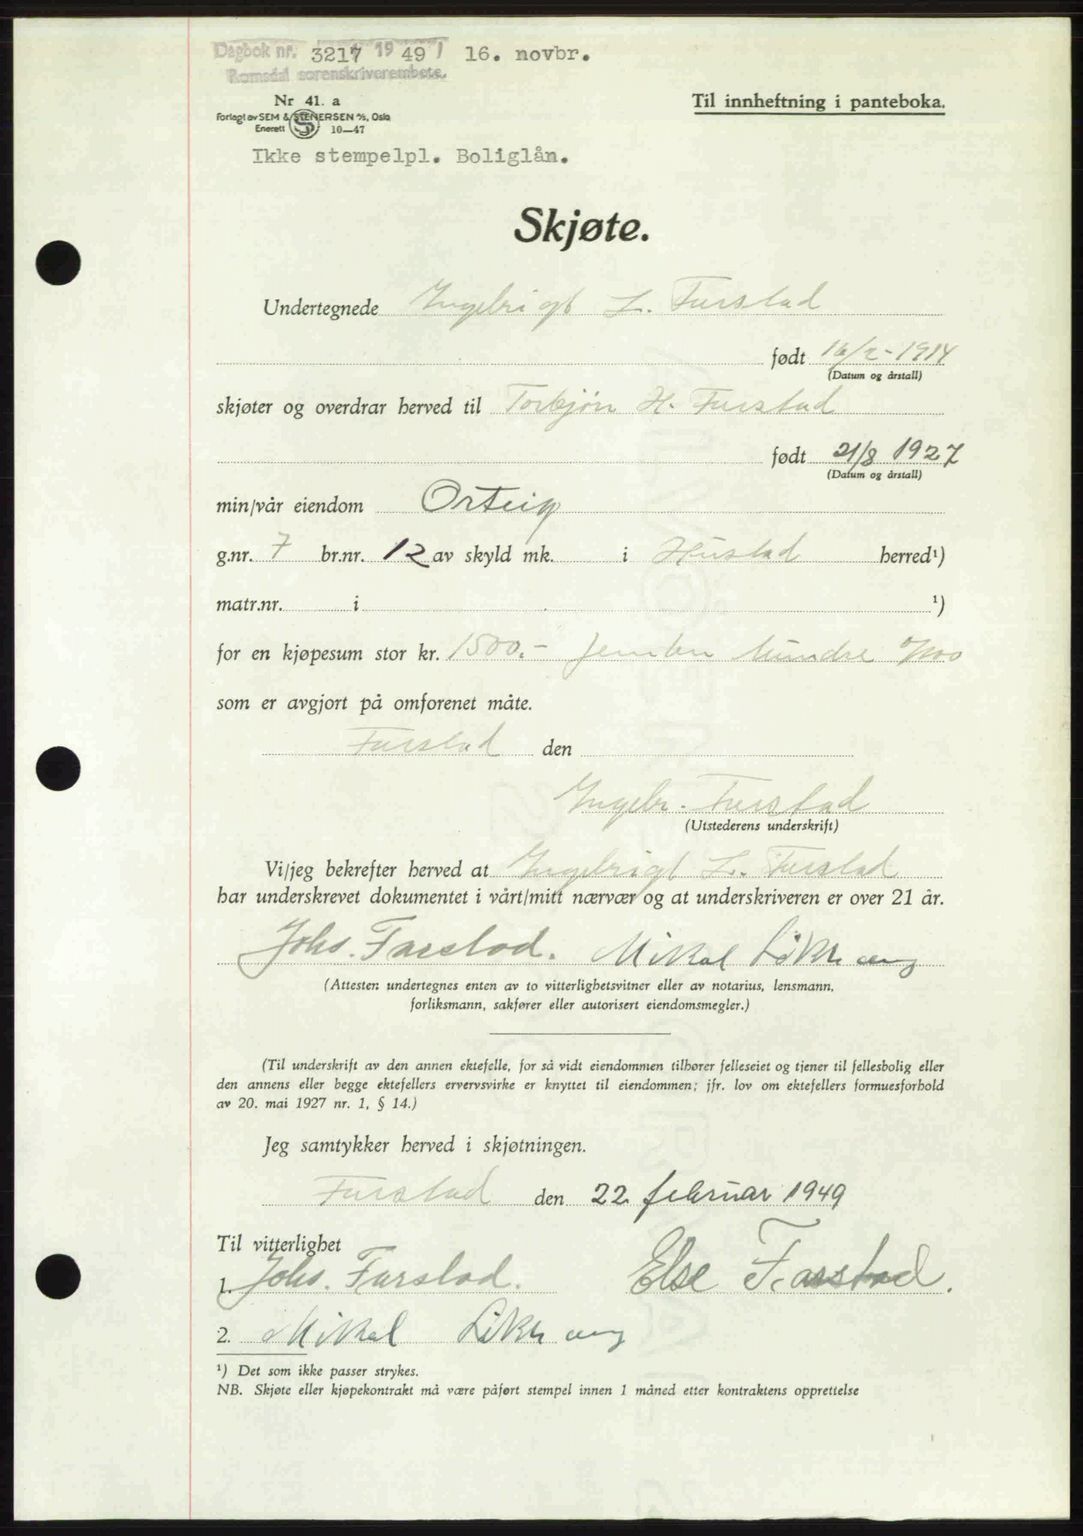 Dagbok nr. 3217 1949 16. novbr.
Romsdal sorenskriverembete.
Nr 41. a
Til innheftning i panteboka.
Forlagt av SEM & STENERSEN A/S, Oslo
Enerett S 10—47
Ikke stempelpl. Boliglån.
Skjøte.
Undertegnede Ingebrigt L. Farstad
født 16/2-1914
(Datum og årstall)
skjøter og overdrar herved til Torbjörn H. Farstad
født 21/8 1927
(Datum og årstall)
min/vår eiendom Orteig
g.nr. 7 br.nr. 12 av skyld mk. i Hustad herred¹)
matr.nr. i ¹)
for en kjøpesum stor kr. 1500.- femten hundre 0/100
som er avgjort på omforenet måte.
Farstad den
Ingebr. Farstad
(Utstederens underskrift)
Vi/jeg bekrefter herved at Ingebrigt L. Farstad
har underskrevet dokumentet i vårt/mitt nærvær og at underskriveren er over 21 år.
Johs. Farstad. Mikal
(Attesten undertegnes enten av to vitterlighetsvitner eller av notarius, lensmann,
forliksmann, sakfører eller autorisert eiendomsmegler.)
(Til underskrift av den annen ektefelle, for så vidt eiendommen tilhører felleseiet og tjener til fellesbolig eller
den annens eller begge ektefellers ervervsvirke er knyttet til eiendommen; jfr. lov om ektefellers formuesforhold
av 20. mai 1927 nr. 1, § 14.)
Jeg samtykker herved i skjøtningen.
Farstad den 22 februar 1949
Til vitterlighet
1. Johs. Farstad. Else Farstad.
2. Mikal
¹) Det som ikke passer strykes.
NB. Skjøte eller kjøpekontrakt må være påført stempel innen 1 måned etter kontraktens opprettelse